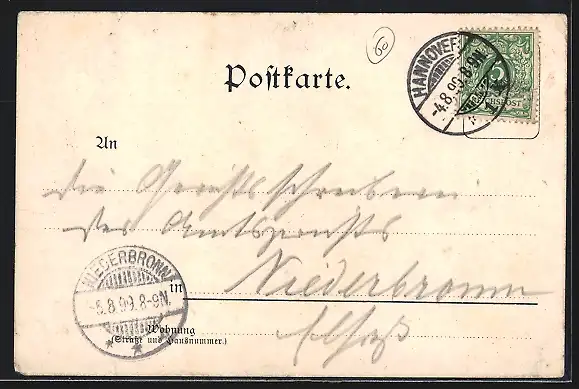 60
Postkarte.
HANNOVER
-4.8.99.8-9N.
REICHSPOST
An
Die Gerichtsschreiberei
des Amtsgerichts
NIEDERBRONN
-5.8.99.8-9N.
in Niederbronn
Wohnung
(Straße und Hausnummer.)
Elsaß